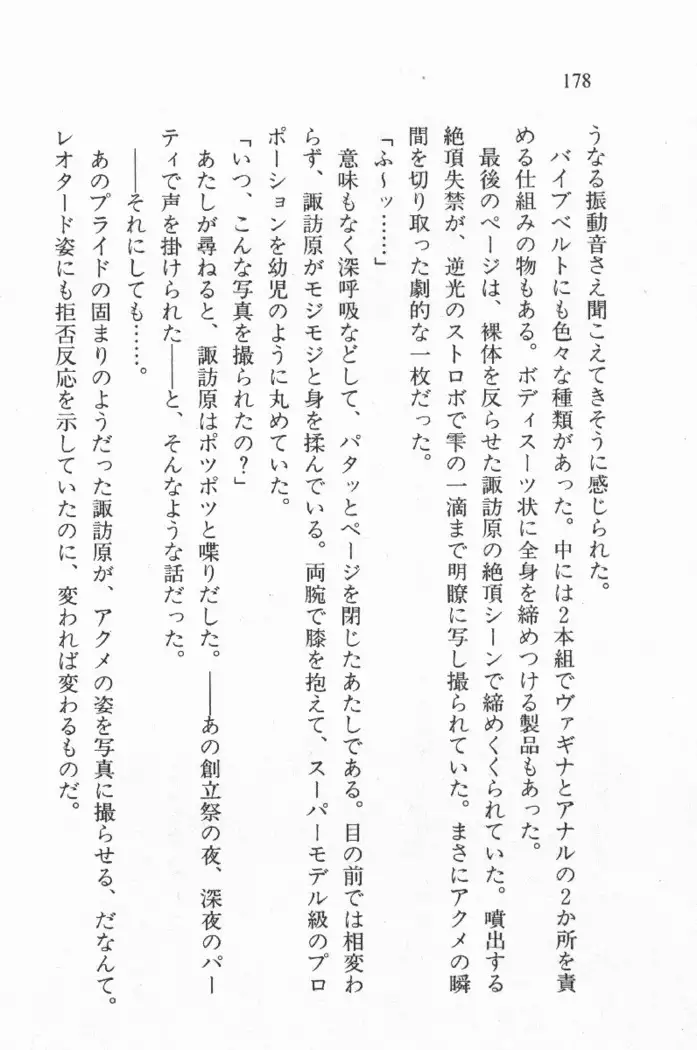 178
うなる振動音さえ聞こえてきそうに感じられた。
バイブベルトにも色々な種類があった。中には２本組でヴァギナとアナルの２か所を責
める仕組みの物もある。ボディスーツ状に全身を締めつける製品もあった。
最後のページは、裸体を反らせた諏訪原の絶頂シーンで締めくくられていた。噴出する
絶頂失禁が、逆光のストロボで雫の一滴まで明瞭に写し撮られていた。まさにアクメの瞬
間を切り取った劇的な一枚だった。
「ふ〜ッ……」
意味もなく深呼吸などして、パタッとページを閉じたあたしである。目の前では相変わ
らず、諏訪原がモジモジと身を揉んでいる。両腕で膝を抱えて、スーパーモデル級のプロ
ポーションを幼児のように丸めていた。
「いつ、こんな写真を撮られたの？」
あたしが尋ねると、諏訪原はポツポツと喋りだした。――あの創立祭の夜、深夜のパー
ティで声を掛けられた――と、そんなような話だった。
――それにしても……。
あのプライドの固まりのようだった諏訪原が、アグメの姿を写真に撮らせる、だなんて。
レオタード姿にも拒否反応を示していたのに、変われば変わるものだ。